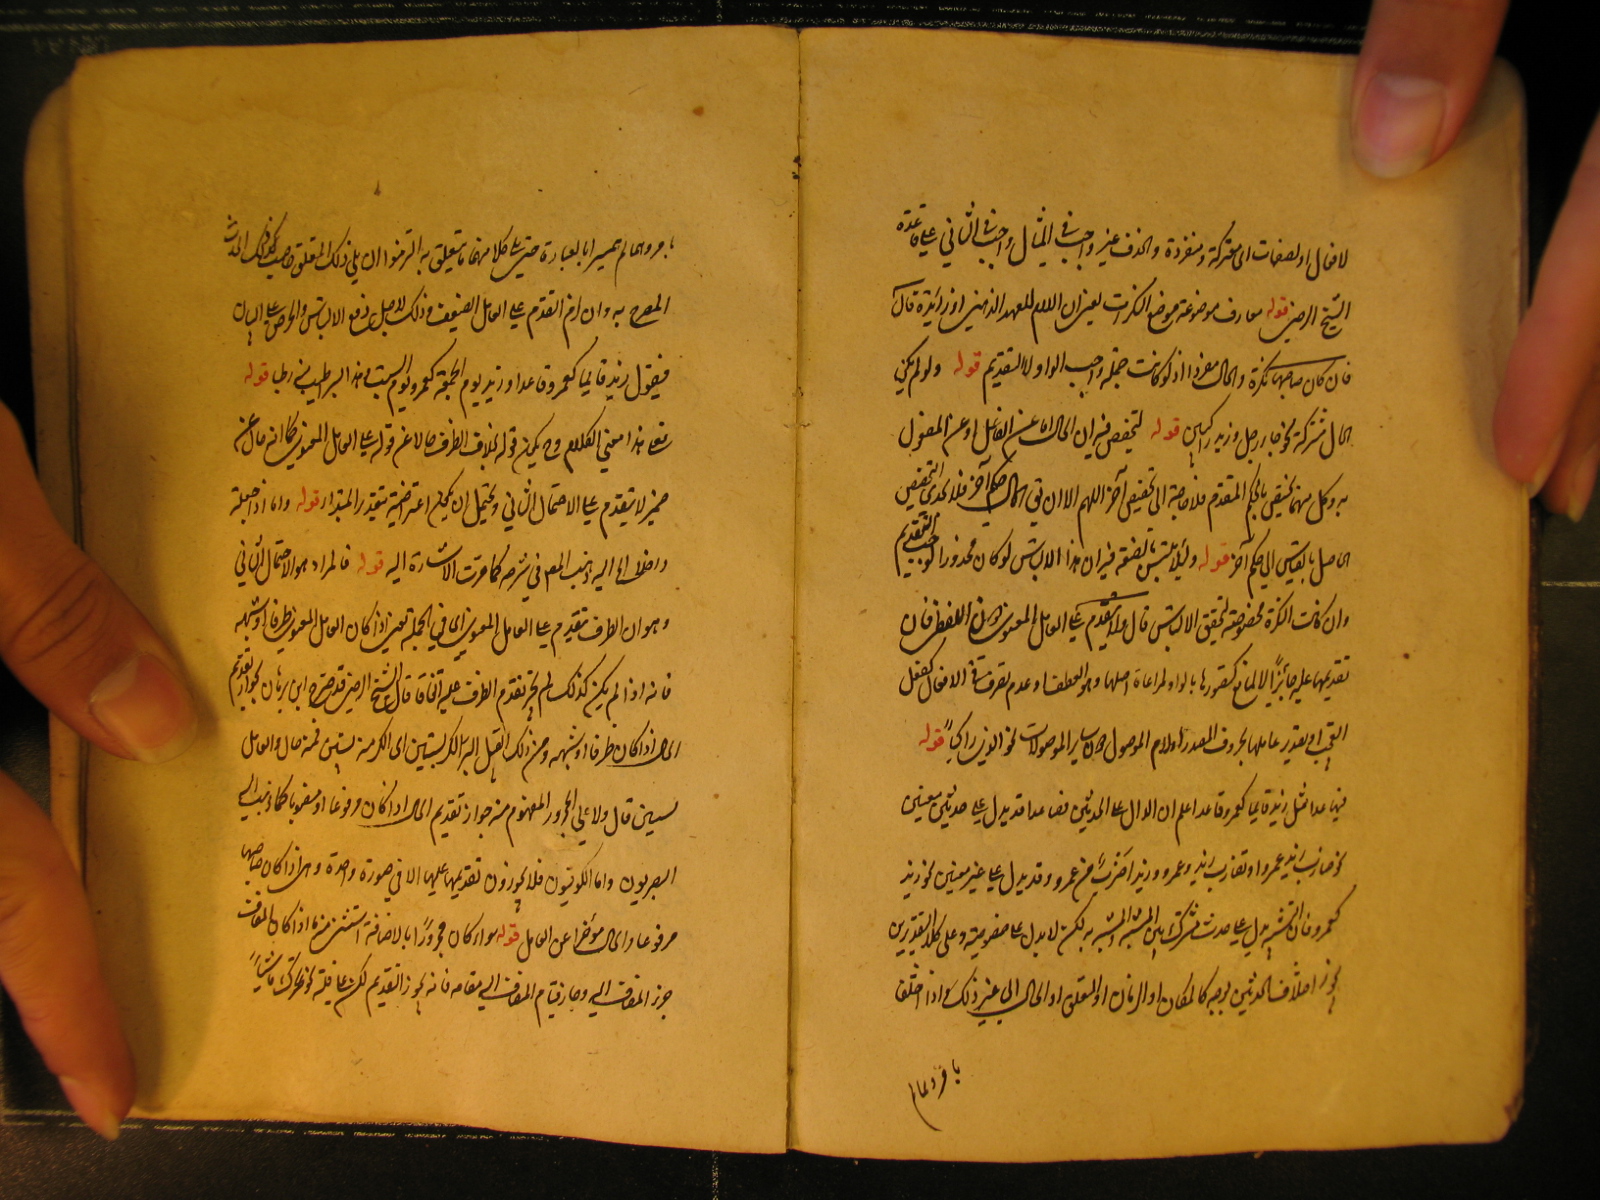 لافعال او لصفات اى معتركة ومنفردة والحذف غير واجب فى المثال واجب فى الثاني على قاعدة
الشيخ الرضى قوله معارف موضوعة موضع النكرات يعنى ان اللام للعهد الذهنى او زائدة قال
فان كان صاحبها نكرة والحال مفردا اذ لو كانت جملة وجب الواو لا التقديم قوله ولو لم يكن
الحال مشتركة نحو جاء رجل وزيد راكبين قوله لتخصص فيه ان الحال اما عن الفاعل او عن المفعول
به وكل منهما تخصص بالحكم المقدم فلا حاجة الى تخصيص آخر اللهم الا ان فى الحال حكم آخر فلا يجدى التخصيص
الحاصل بالقياس الى حكم آخر قوله ولئلا يلتبس بالصفة فيه ان هذا الالتباس لو كان محذورا لوجب التقديم
وان كانت النكرة مخصوصة لتحقق الالتباس قال ولا يتقدم على العامل المعنوى بخلاف اللفظى فان
تقديمها عليه جائز الا لمانع كتصدرها بالواو لمراعاة اصلها وهو العطف او عدم تصرف فى الافعال كفعل
التعجب او تصدر عاملها بحروف المصدر او لام الموصول بخلاف ساير الموصولات نحو الذى راكبا قوله
فيما عدا مثل زيد قايما كعمرو قاعدا اعلم ان الدال على الحدثين فصاعدا قد يدل على حدثين معينين
نحو ضارب زيد عمروا او تضارب زيد وعمرو وزيد اضرب من عمرو وقد يدل على غير معينين نحو زيد
كعمرو فان التشبيه يدل على حدث مشترك بين المشبه والمشبه به لكن لا يدل على خصوصيته وعلى كلا التقديرين
يجوز اختلاف الحدثين بوجه كالمكان او الزمان او المتعلق او الحال الى غير ذلك واذا اختلفا
بامر ولما لم
بامر ولما لم يتميز ابالعبارة حتى على كلا منهما ما يتعلق به التزموا ان يلى ذلك المتعلق صاحب ذلك الحدث
المصرح به وان لزم التقدم على العامل الضعيف وذلك لاجل دفع الالتباس والحرص على البيان
فيقول زيد قايما كعمرو قاعدا وزيد يوم الجمعة كعمرو يوم السبت وهذا بسرا طيب منه رطبا قوله
هذا معنى الكلام وح يكون قوله بخلاف الظرف حالا عن قوله على العامل المعنوى كما انه حال عن
ضمير لا يتقدم على الاحتمال الثاني ويحتمل ان يكون اعتراضية بتقدير المبتدأ قوله واما اذا جعلته
داخلا الى اليه ذهب المص فى شرحه كما مرت الاشارة اليه قوله فالمراد هو الاحتمال الثاني
وهو ان الظرف متقدم على العامل المعنوى اى فى الجملة يعنى اذا كان العامل المعنوى ظرفا او شبهه
فانه اذا لم يكن كذلك لم يجز تقدم الظرف عليه اتفاقا قال الشيخ الرضى قد صرح ابن برهان بجواز تقديم
الحال اذا كان ظرفا او شبهه ومن ذلك القبيل البر الكر بستين اى الكر منه بستين فمنه حال والعامل
بستين قال ولا على المجرور المفهوم منه جواز تقديم الحال اذا كان مرفوعا او منصوبا كما ذهب اليه
البصريون واما الكوفيون فلا يجوزون تقديمها عليها الا فى صورة واحدة وهى اذا كان صاحبها
مرفوعا والحال مؤخرا عن العامل قوله سواء كان مجرورا بالاضافة استثنى منه ما اذا كان المضاف
جزء المضاف اليه وجاز قيام المضاف اليه مقامه فانه يجوز التقديم لكن على قلة نحو تحرك ماشيا